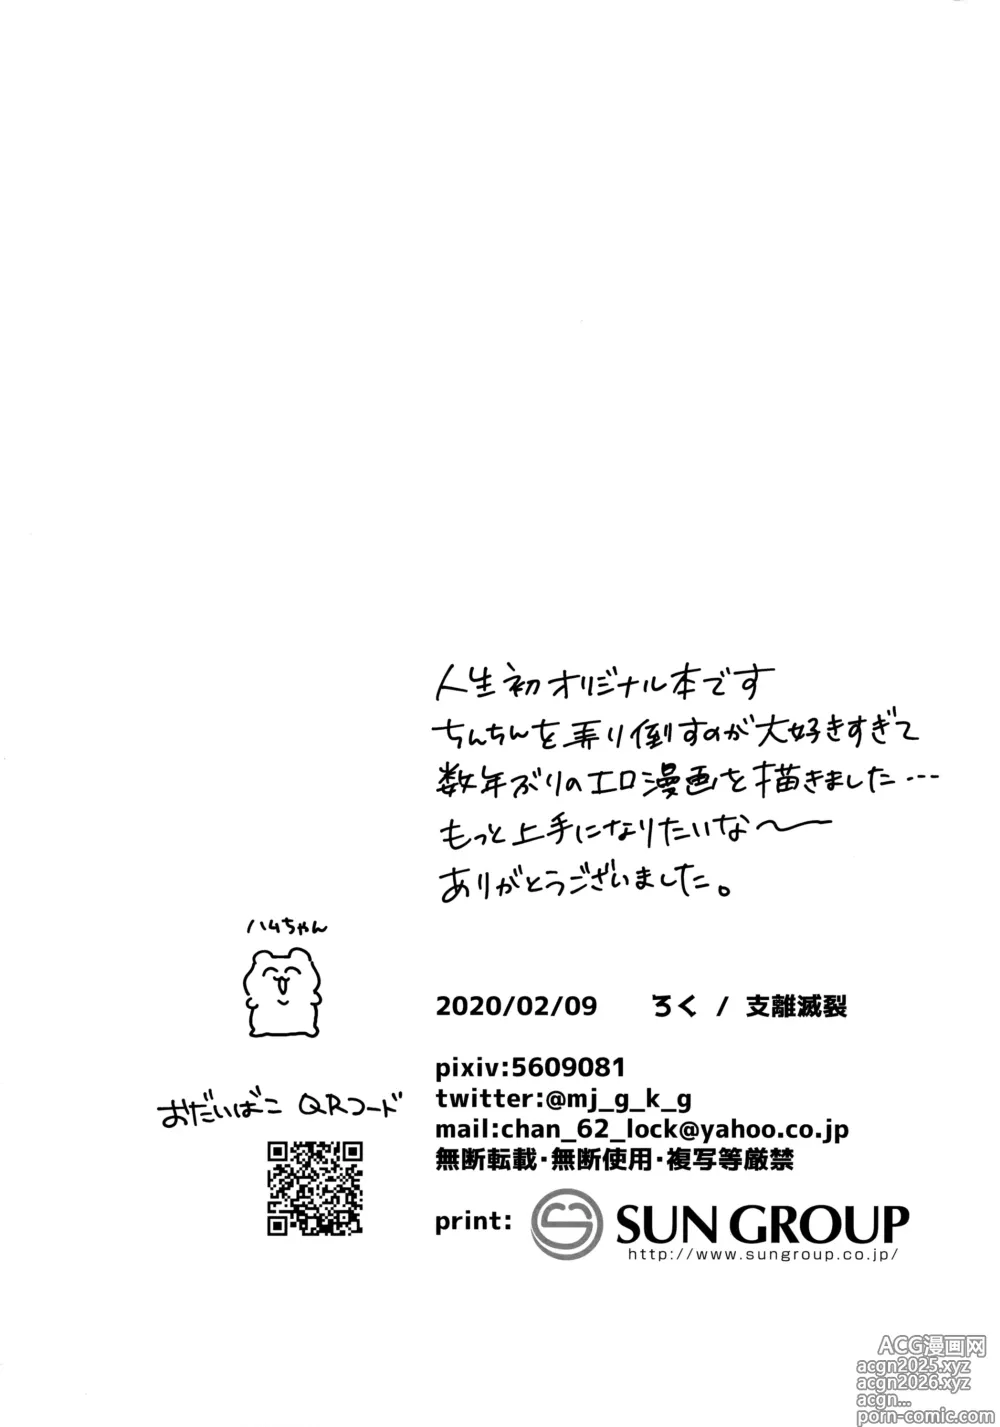 人生初オリジナル本です
ちんちんを弄り倒すのが大好きすぎて
数年ぶりのエロ漫画を描きました…
もっと上手になりたいな〜
ありがとうございました。
ハムちゃん
2020/02/09 ろく / 支離滅裂
pixiv:5609081
twitter:@mj_g_k_g
mail:chan_62_lock@yahoo.co.jp
無断転載・無断使用・複写等厳禁
おだいばこ QRコード
print: SUN GROUP
http://www.sungroup.co.jp/
ACG漫画网
acgn2025.xyz
acgn2026.xyz
acgn...
porn-comic.com